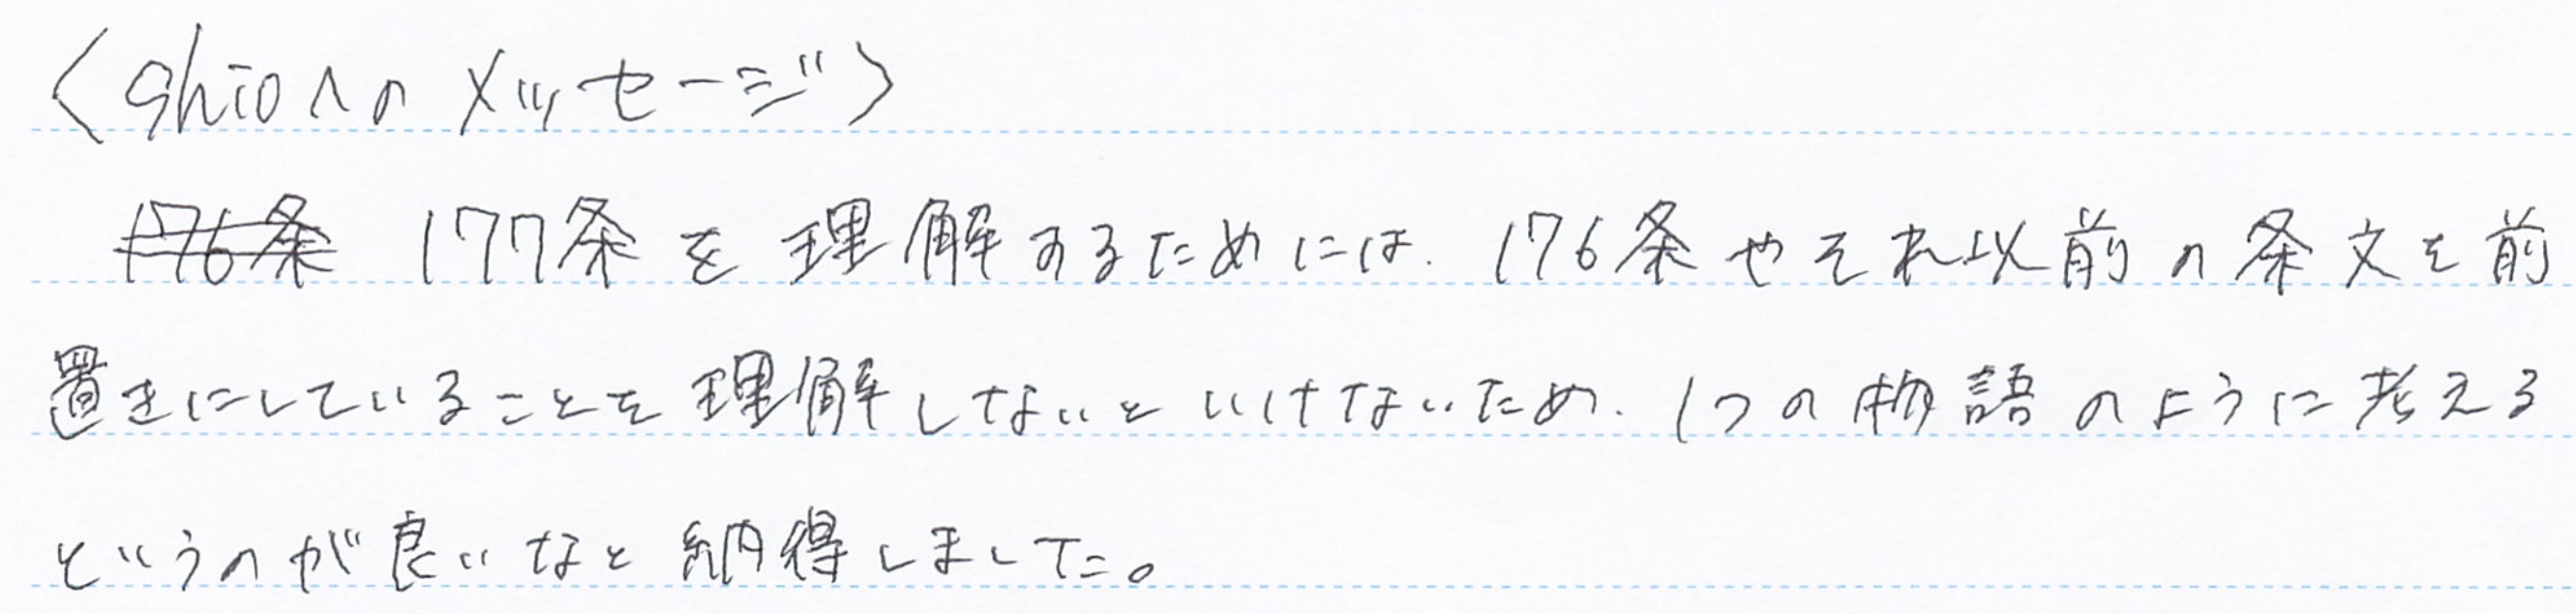 〈shioへのメッセージ〉
176条 177条を理解するためには、176条やそれ以前の条文を前
置きにしていることを理解しないといけないため、1つの物語のように考える
というのが良いなと納得しました。